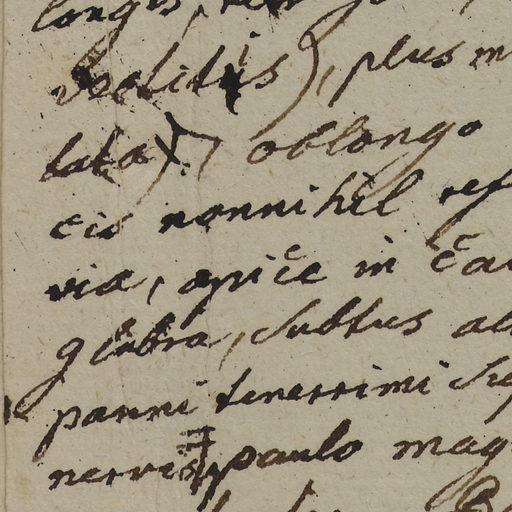 longis,
solitis), plus m
tata), oblongo
cis nonnihil ref
via, apice in cau
glabra, subtus al
panni tenerrimi sup
nervis, paulo mag